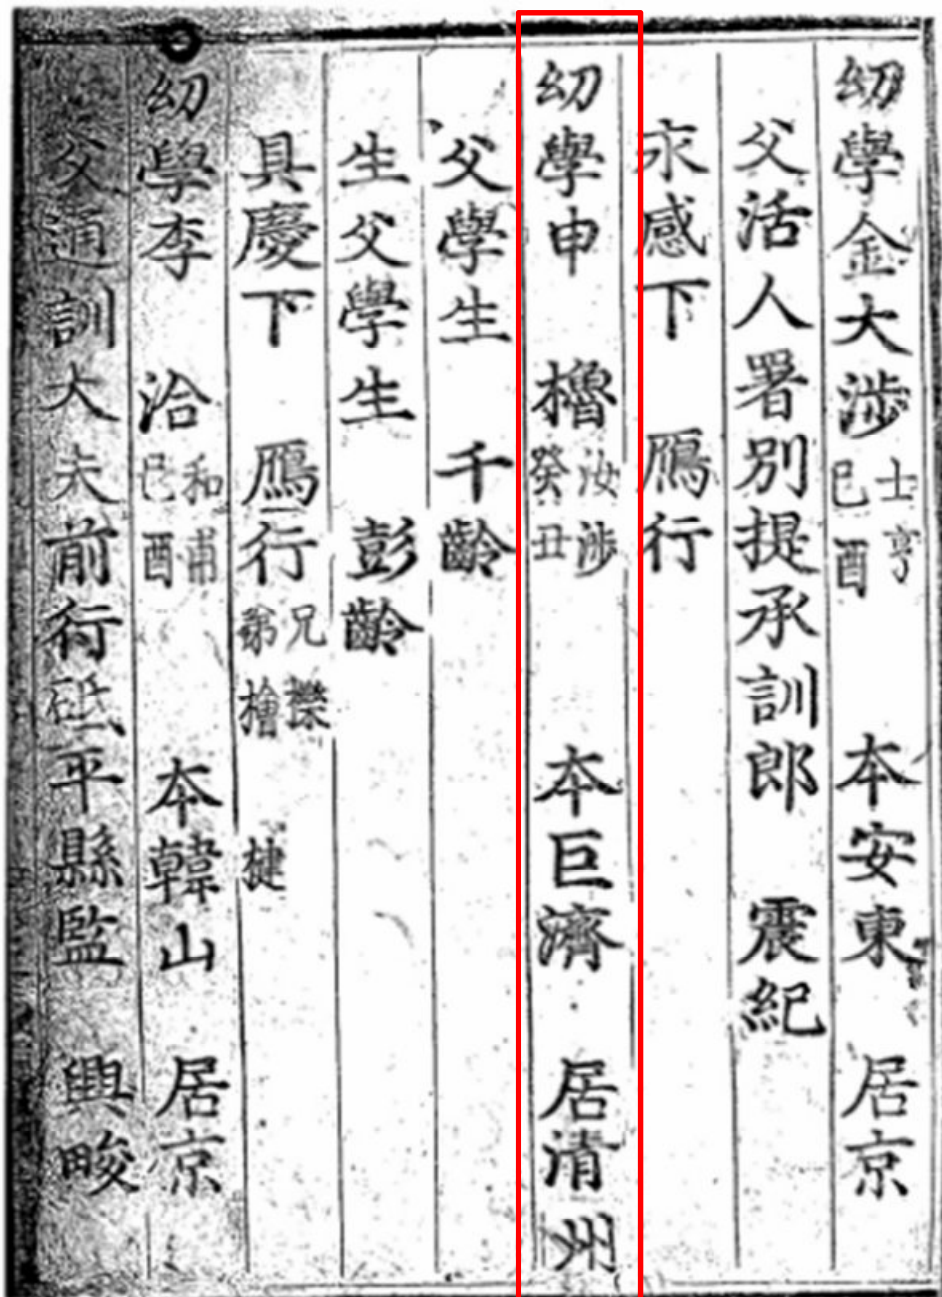 幼學金大涉 士亨 己酉 本安東 居京
父活人署別提承訓郎 震紀
永感下 鴈行
幼學申 櫓 汝涉 癸丑 本巨濟 居清州
父學生 千齡
生父學生 彭齡
具慶下 鴈行 兄 櫟 弟 檜 揵
幼學李 洽 和甫 己酉 本韓山 居京
父通訓大夫前行砥平縣監 興畯